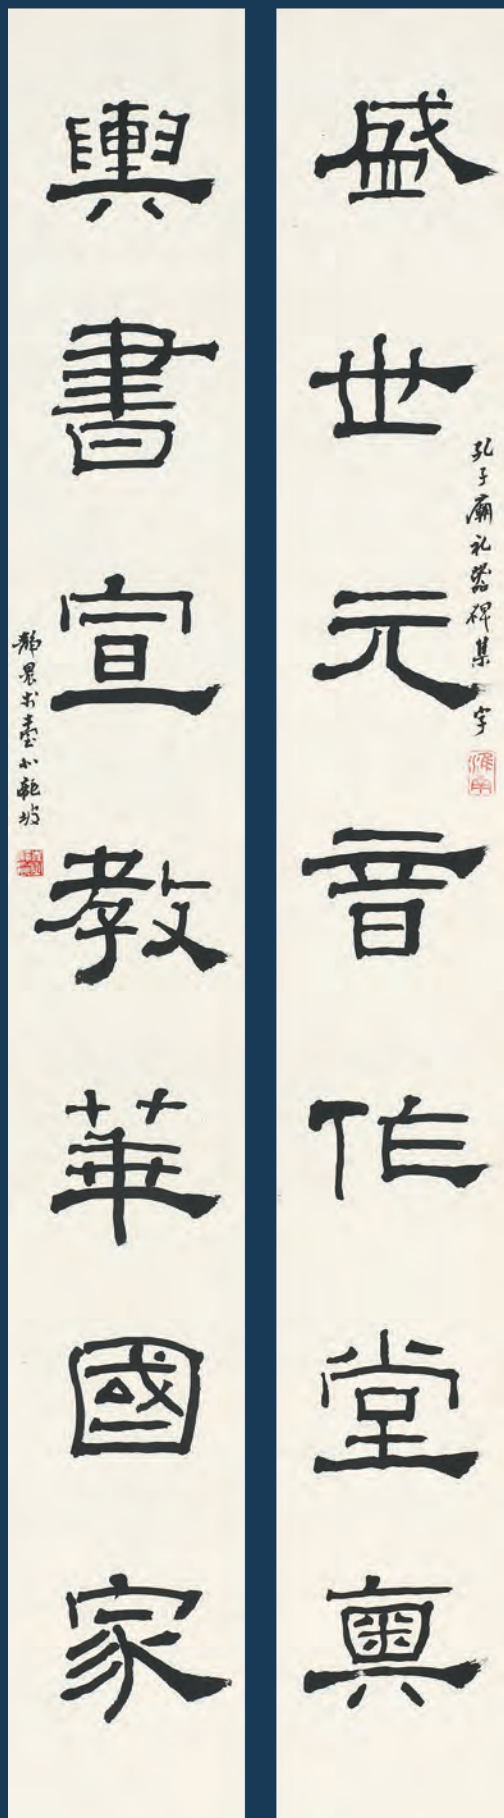 盛世元音作堂奥
孔子廟礼器碑集字
輿書宣教華國家
静農于臺北龍坡